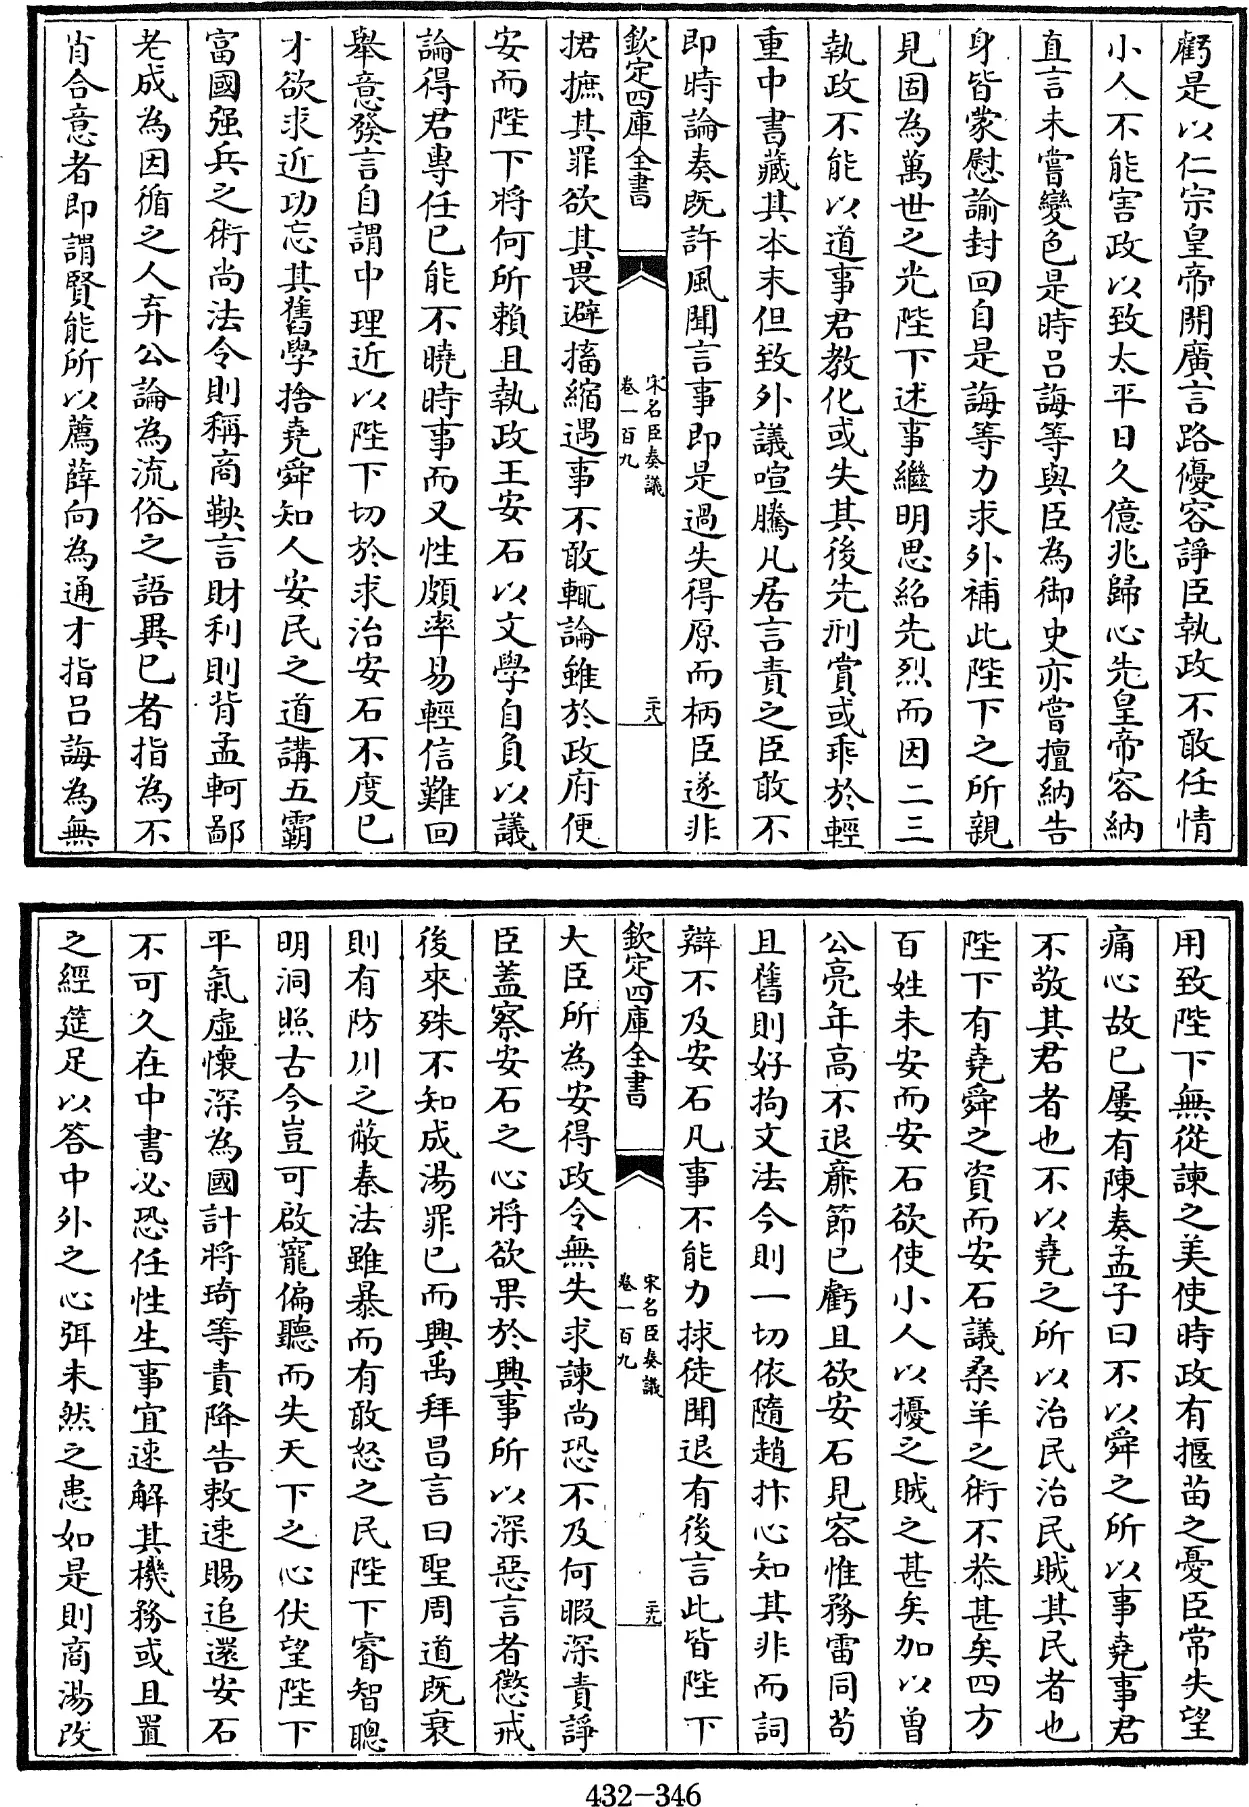 虧是以仁宗皇帝開廣言路優容諍臣執政不敢任情
小人不能害政以致太平日久億兆歸心先皇帝容納
直言未嘗變色是時呂誨等與臣為御史亦嘗擅納告
身皆蒙慰諭封回自是誨等力求外補此陛下之所親
見固為萬世之光陛下述事繼明思紹先烈而因二三
執政不能以道事君教化或失其後先刑賞或乖於輕
重中書藏其本末但致外議喧騰凡居言責之臣敢不
即時論奏既許風聞言事即是過失得原而柄臣遂非
欽定四庫全書
宋名臣奏議
卷一百九
二十八
捃摭其罪欲其畏避搐縮遇事不敢輒論雖於政府便
安而陛下將何所賴且執政王安石以文學自負以議
論得君專任已能不曉時事而又性頗率易輕信難回
舉意發言自謂中理近以陛下切於求治安石不度已
才欲求近功忘其舊學捨堯舜知人安民之道講五霸
富國强兵之術尚法令則稱商鞅言財利則背孟軻鄙
老成為因循之人弃公論為流俗之語異已者指為不
肖合意者即謂賢能所以薦薛向為通才指呂誨為無
用致陛下無從諫之美使時政有揠苗之憂臣常失望
痛心故已屢有陳奏孟子曰不以舜之所以事堯事君
不敬其君者也不以堯之所以治民治民賊其民者也
陛下有堯舜之資而安石議桑羊之術不恭甚矣四方
百姓未安而安石欲使小人以擾之賊之甚矣加以曾
公亮年高不退亷節已虧且欲安石見容惟務雷同苟
且舊則好拘文法今則一切依隨趙抃心知其非而詞
辯不及安石凡事不能力捄徒聞退有後言此皆陛下
欽定四庫全書
宋名臣奏議
卷一百九
二十九
大臣所為安得政令無失求諫尚恐不及何暇深責諍
臣蓋察安石之心將欲果於興事所以深惡言者懲戒
後來殊不知成湯罪已而興禹拜昌言曰聖周道既衰
則有防川之蔽秦法雖暴而有敢怒之民陛下睿智聰
明洞照古今豈可啟寵偏聽而失天下之心伏望陛下
平氣虛懷深為國計將琦等責降告敕速賜追還安石
不可久在中書必恐任性生事宜速解其機務或且置
之經筵足以答中外之心弭未然之患如是則商湯改
432-346